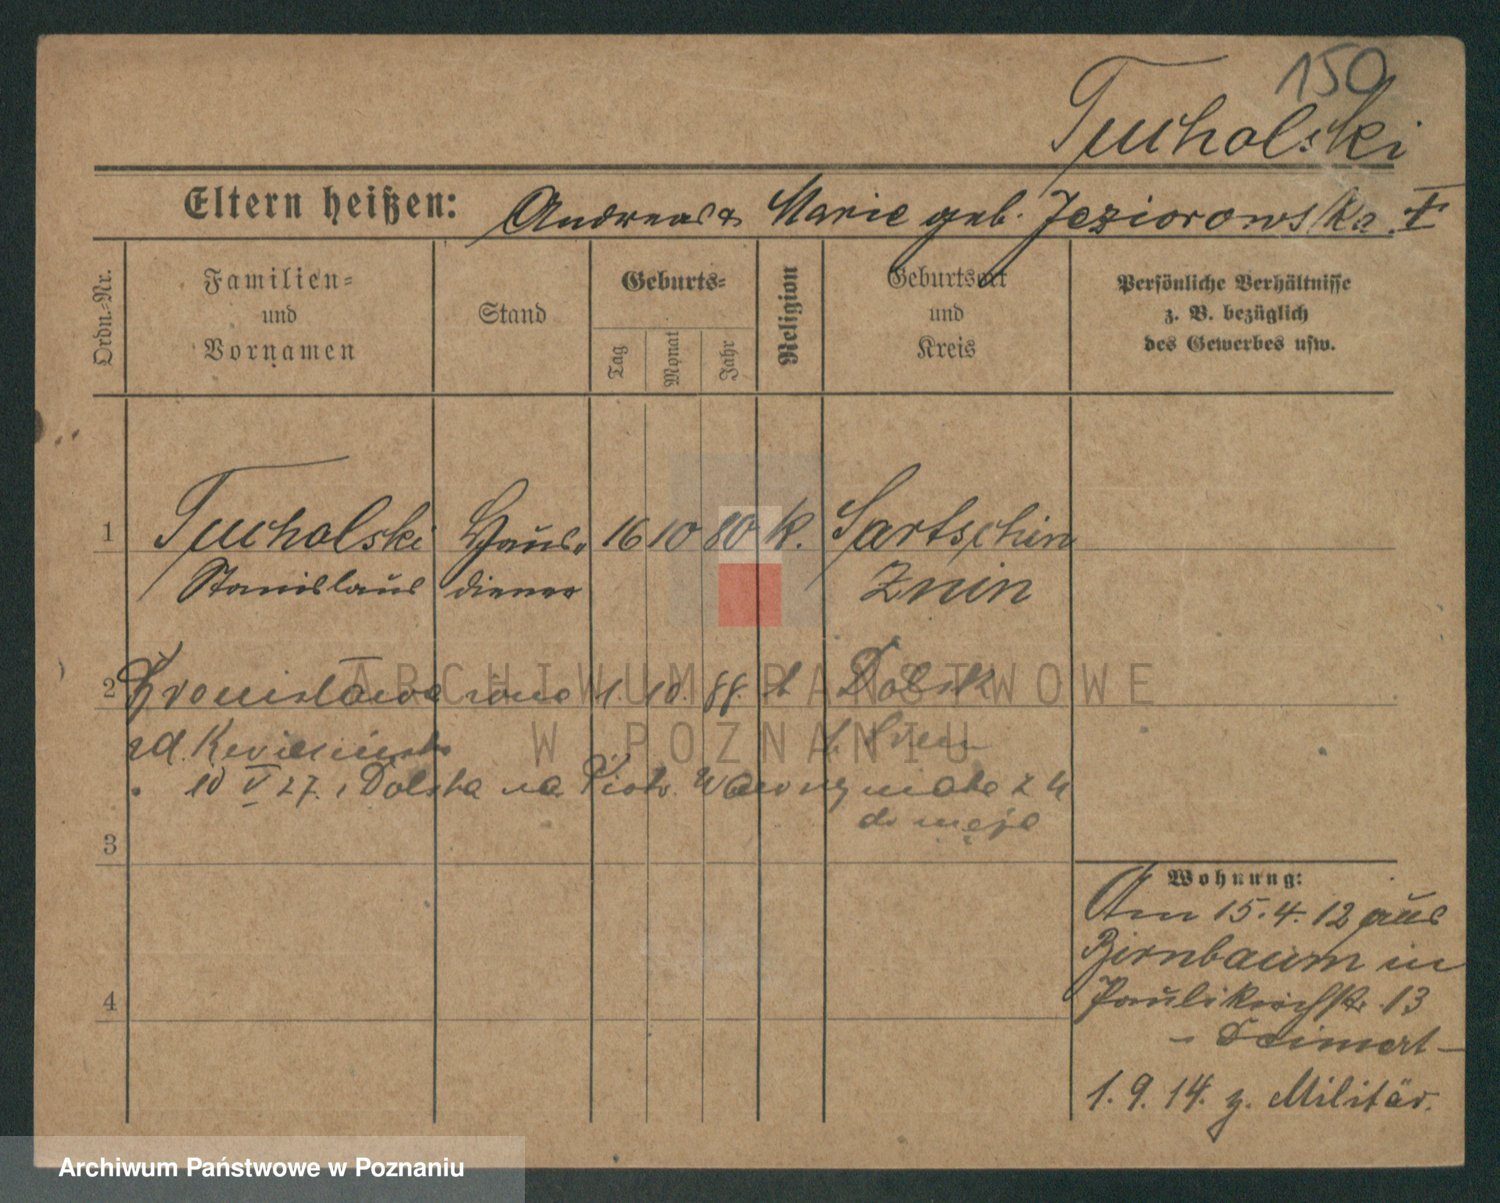 150
Tucholski
Eltern heißen: Andreas & Marie geb. Jeziorowska I
Ordn.-Nr.
Familien- und Vornamen
Stand
Geburts-
Tag
Monat
Jahr
Religion
Geburtsort und Kreis
Persönliche Verhältnisse
z. B. bezüglich
des Gewerbes usw.
1 Tucholski Haus- 16 10 80 k. Sartschin
Stanislaus diener Znin
2 Bronisława żona 1. 10. 88. k Dolsk
zd.
10 V 27. z Dolska na Piotr. Wawrzyniaka 24
do męża
3
4
Wohnung:
Am 15.4.12 aus
Birnbaum in
Paulikirchstr. 13
1.9.14. z. Militär.
ARCHIWUM PAŃSTWOWE
W POZNANIU
Archiwum Państwowe w Poznaniu